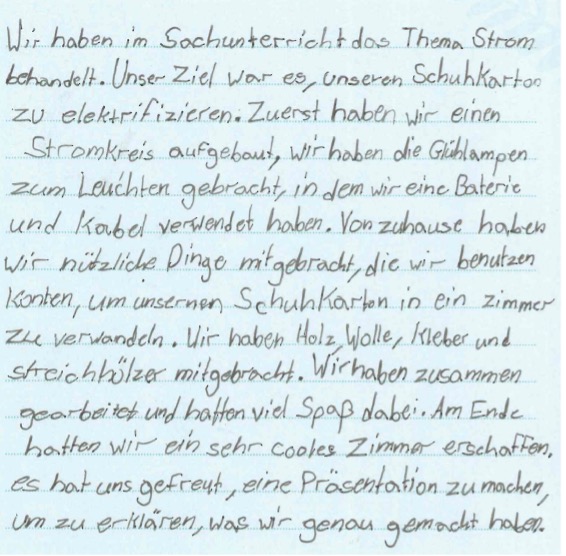 Wir haben im Sachunterricht das Thema Strom
behandelt. Unser Ziel war es, unseren Schuhkarton
zu elektrifizieren. Zuerst haben wir einen
Stromkreis aufgebaut, wir haben die Glühlampen
zum Leuchten gebracht, in dem wir eine Baterie
und Kabel verwendet haben. Von zuhause haben
wir nützliche Dinge mitgebracht, die wir benutzen
konten, um unsernen Schuhkarton in ein zimmer
zu verwandeln. Wir haben Holz, Wolle, Kleber und
streichhölzer mitgebracht. Wir haben zusammen
gearbeitet und hatten viel Spaß dabei. Am Ende
hatten wir ein sehr cooles Zimmer erschaffen.
es hat uns gefreut, eine Präsentation zu machen,
um zu erklären, was wir genau gemacht haben.